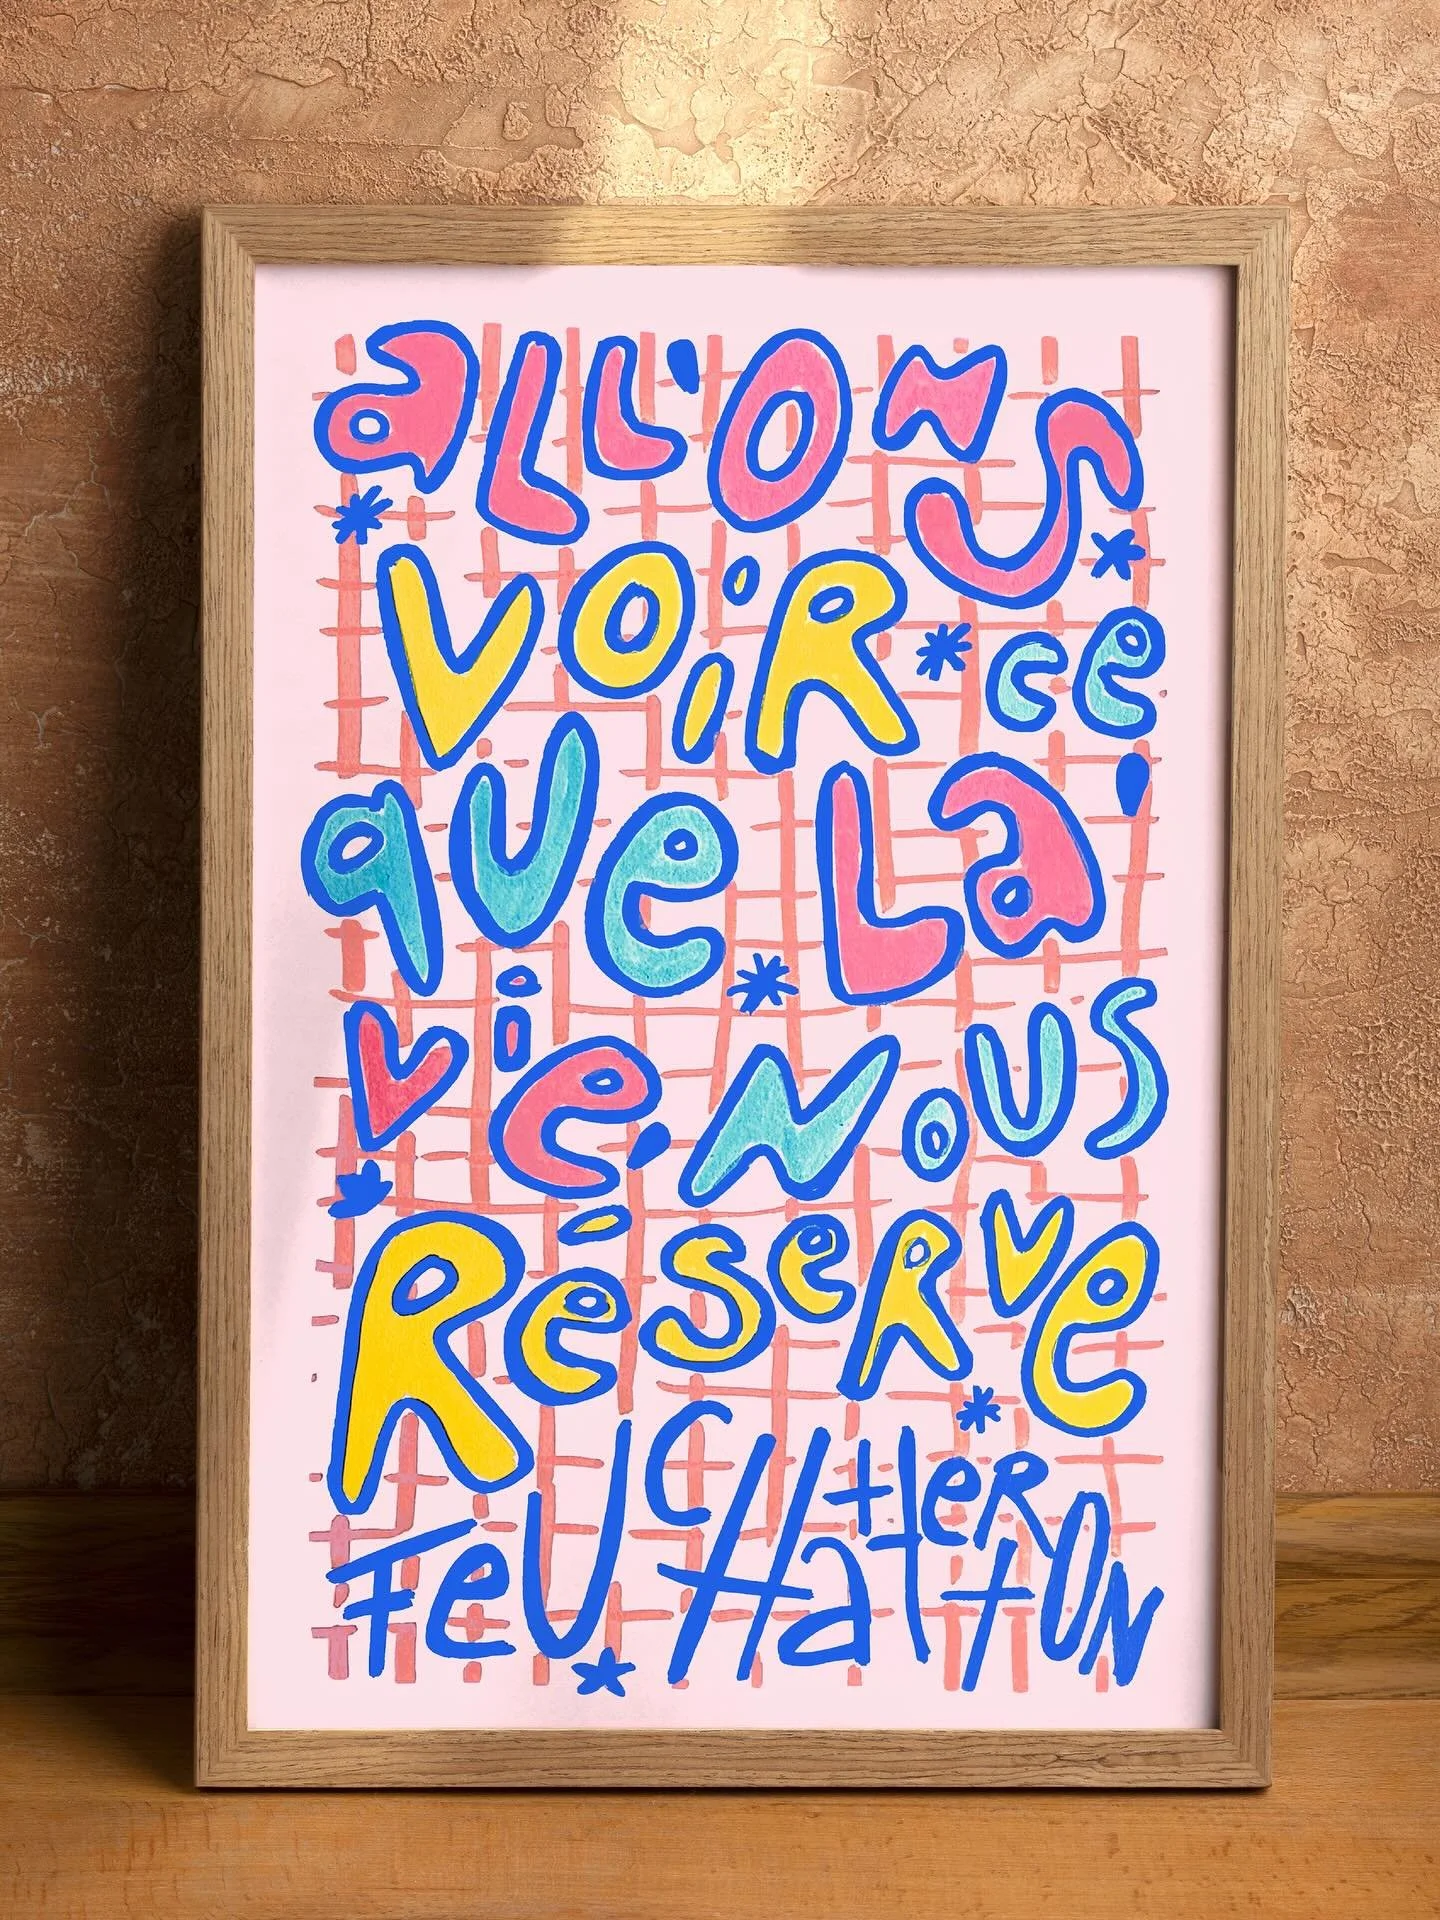 aLL'ONS
VOIR * ce
que La'
vie, NOUS
RéseRve
FeU CHatHERTON